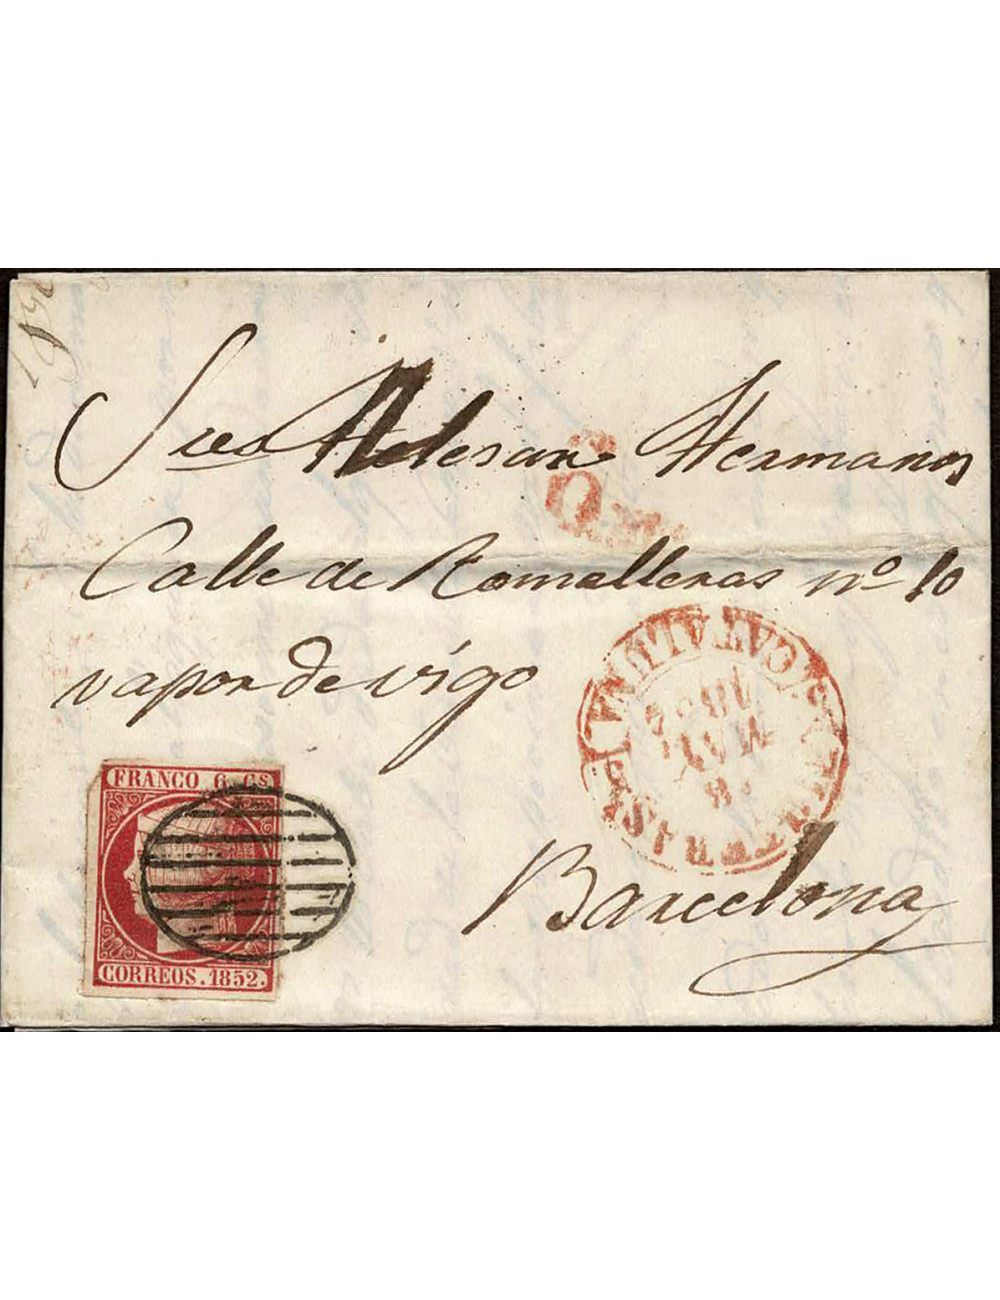 185
Sres Hermanos
Calle de Ramalleras nº 10
vapor de vigo
Barcelona
FRANCO 6 Cs
CORREOS . 1852 .
TARRASA
(CATALUÑA)
MAY